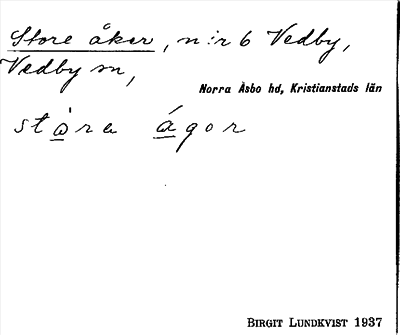 Store åker, n:r 6 Vedby,
Vedby sn,
Norra Åsbo hd, Kristianstads län
stòra ágor
BIRGIT LUNDKVIST 1937